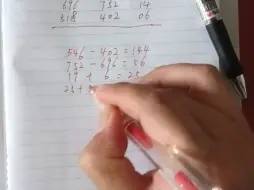 696 752 14
318 402 06
546 - 402 = 144
752 - 696 = 56
19 + 6 = 25
23 +